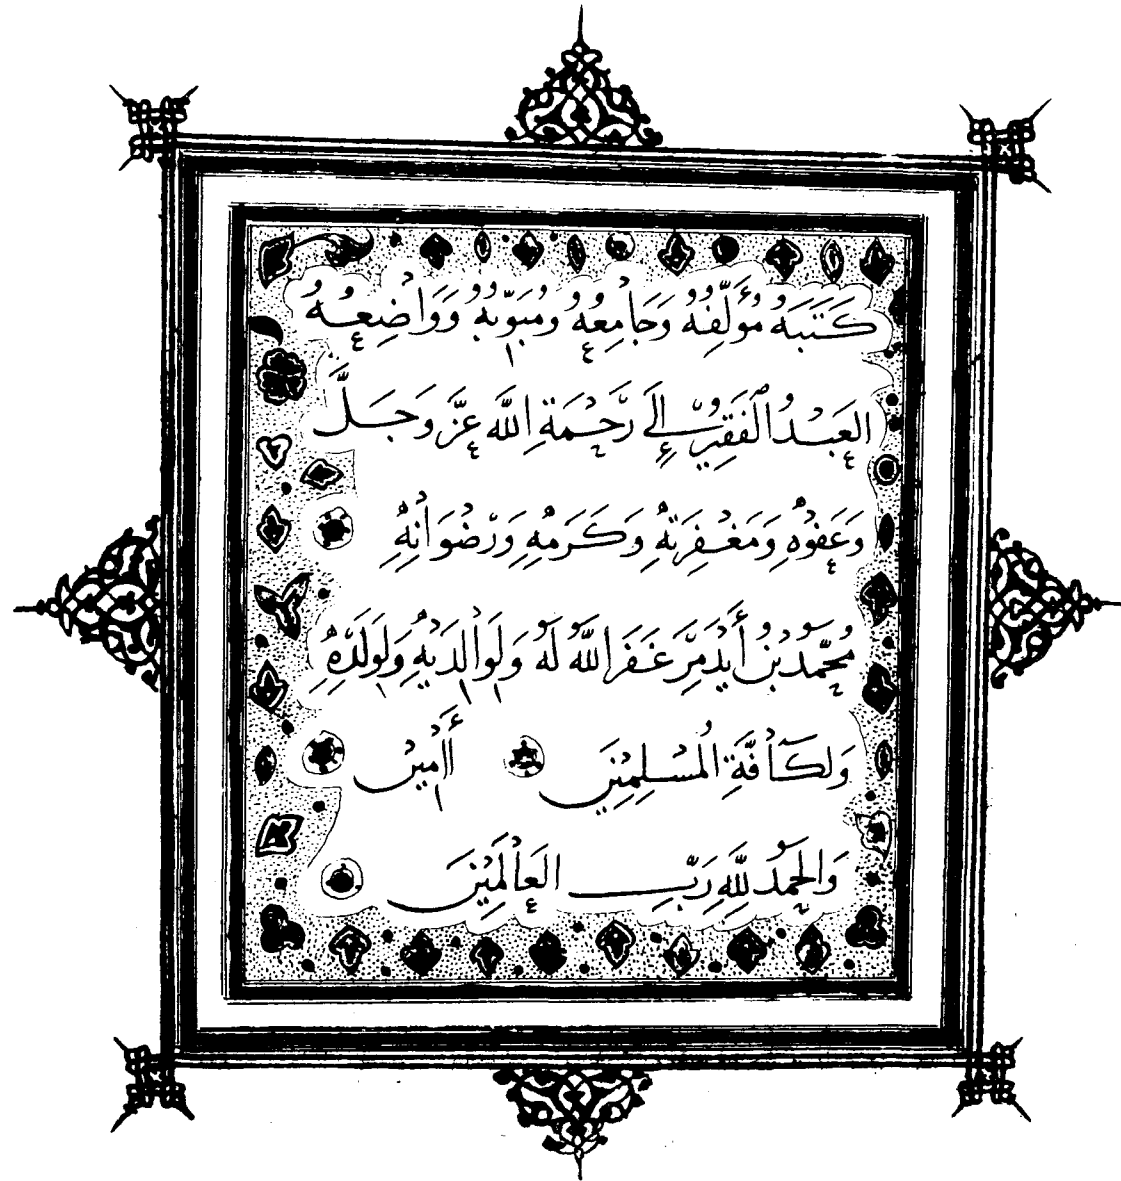 كَتَبَهُ مُؤَلِّفُهُ وَجَامِعُهُ وَمُبَوِّبُهُ وَوَاضِعُهُ
العَبْدُ الْفَقِيرُ إِلَى رَحْمَةِ اللَّهِ عَزَّ وَجَلَّ
وَعَفْوِهِ وَمَغْفِرَتِهِ وَكَرَمِهِ وَرِضْوَانِهِ
مُحَمَّدُ بْنُ أَيْدَمِرَ غَفَرَ اللَّهُ لَهُ وَلِوَالِدَيْهِ وَلِوَلَدِهِ
وَلِكَافَّةِ الْمُسْلِمِينَ أَامِينْ
وَالْحَمْدُ لِلَّهِ رَبِّ الْعَالَمِينَ